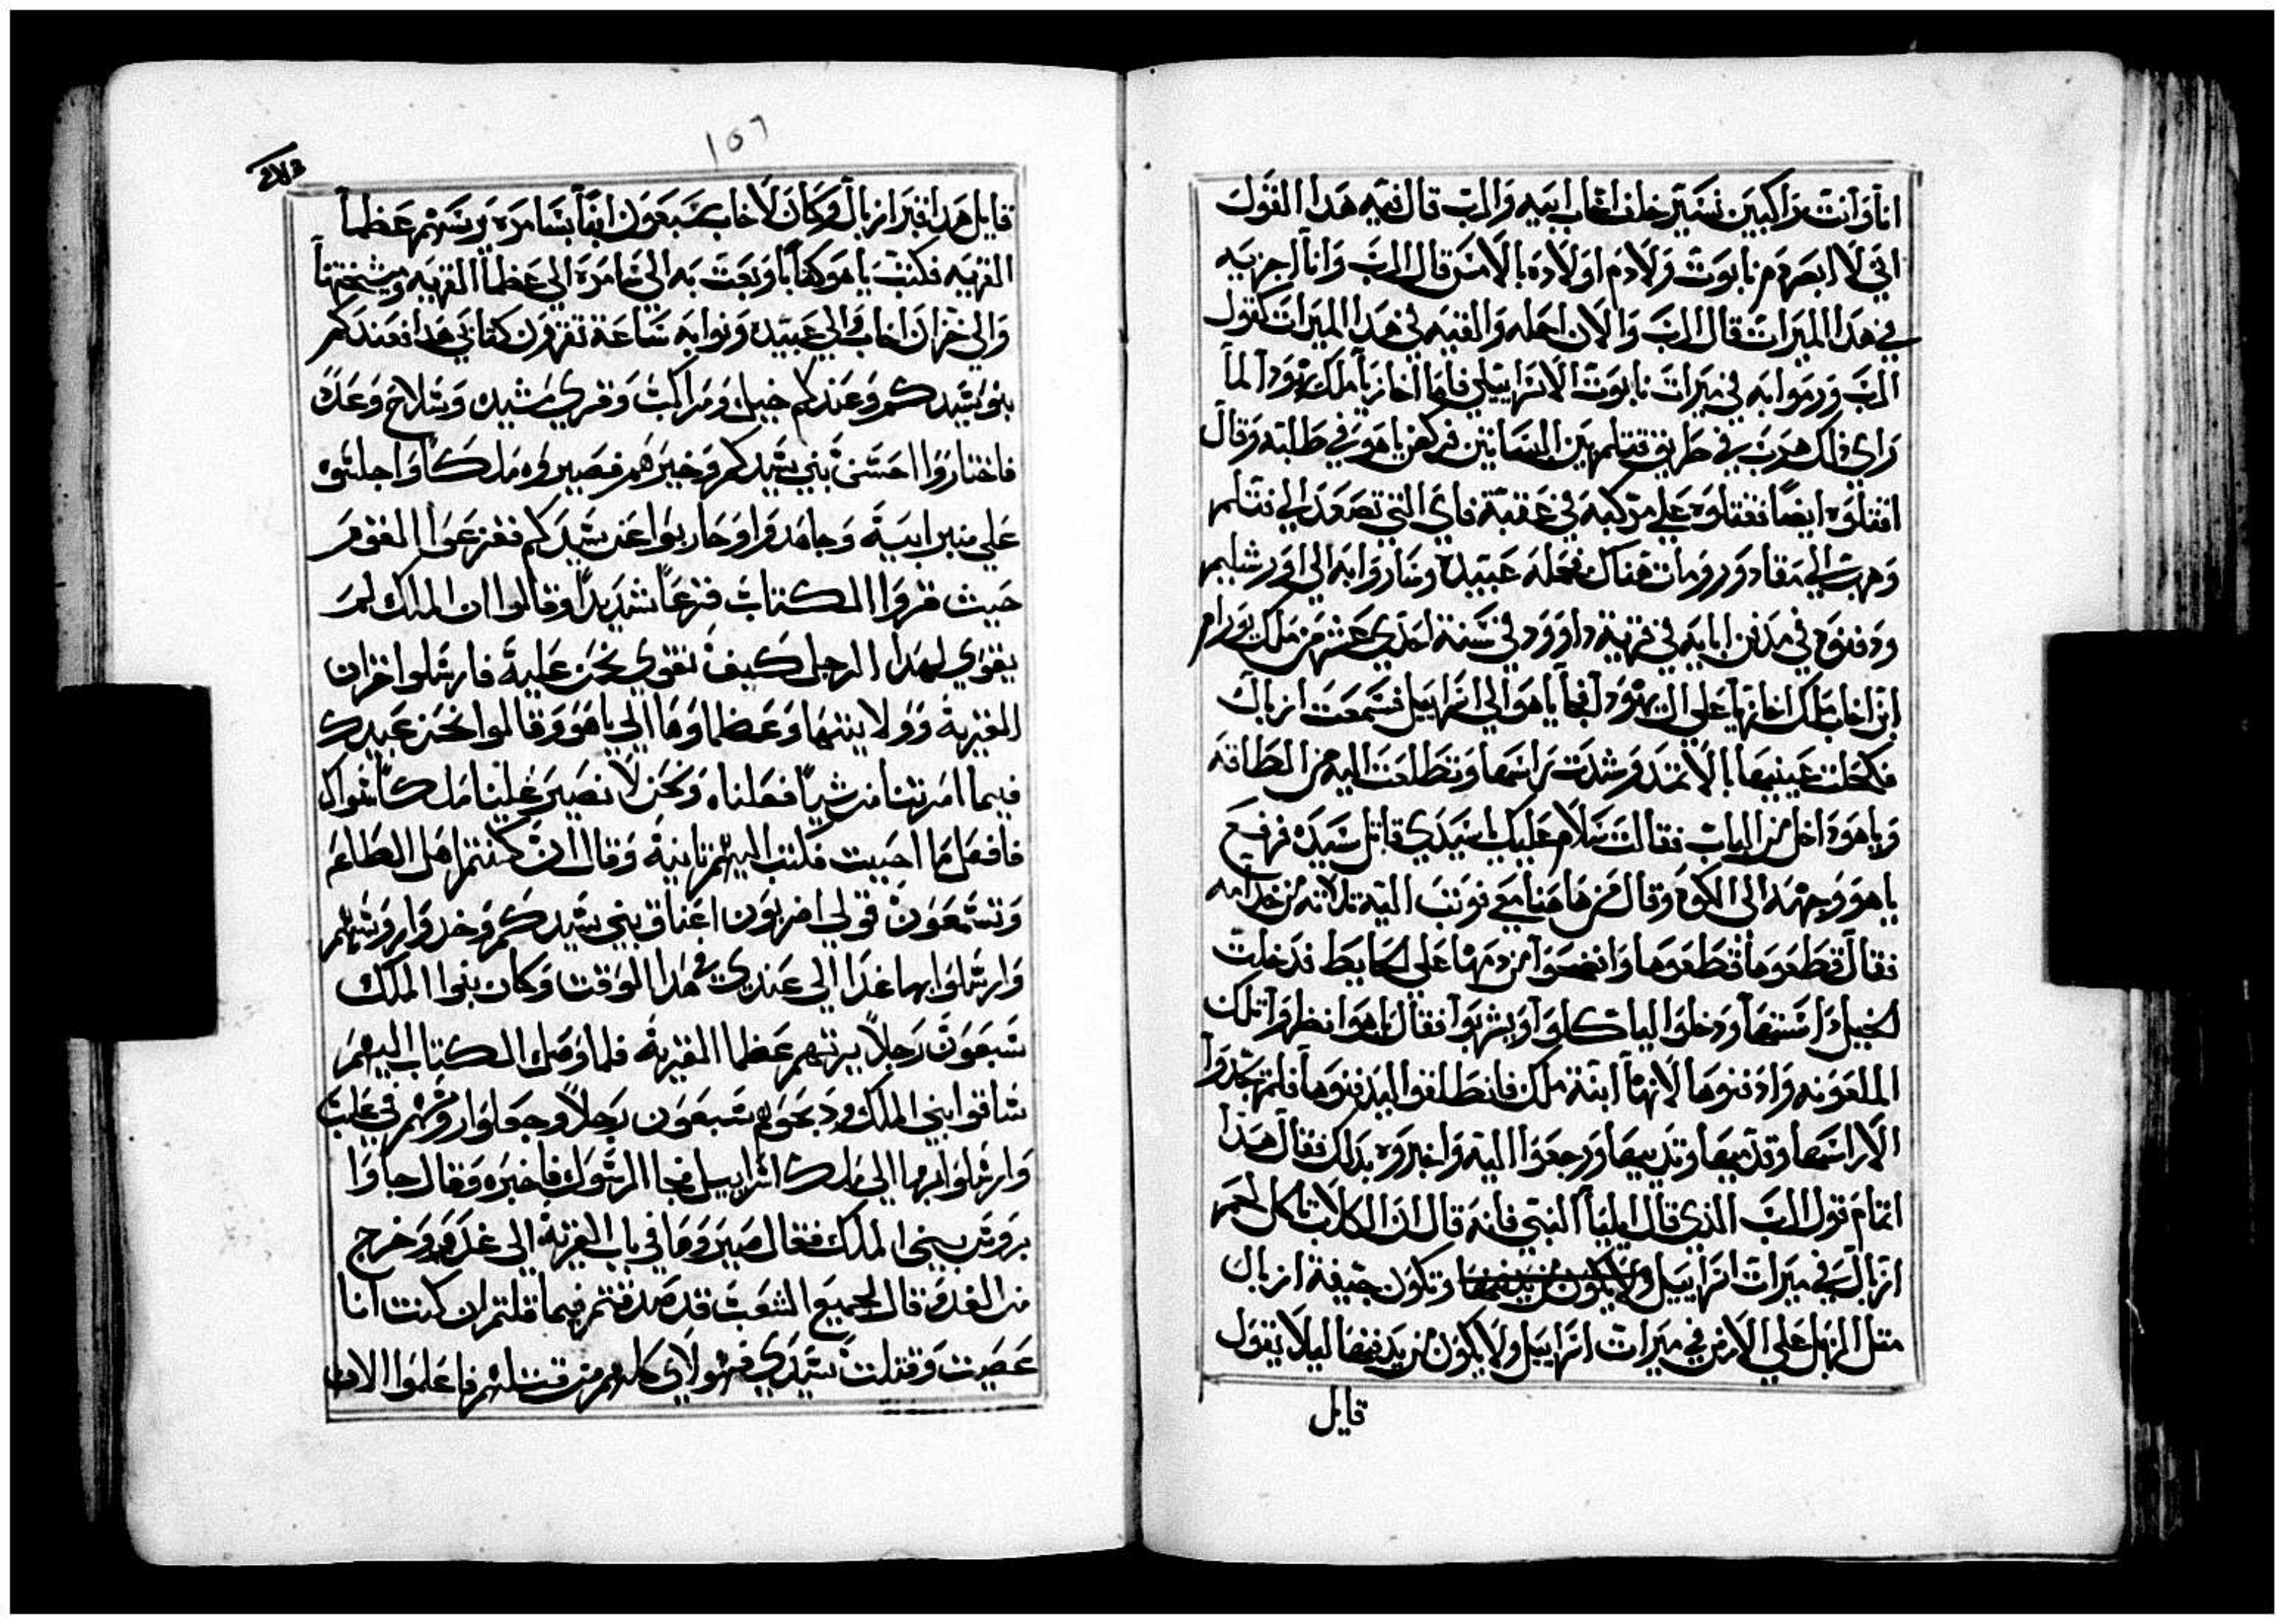 انا وانت راكبين نسير خلف اخاب ابيه والرب قال فيه هدا القول
اني لا ابصر دم نابوت ولا دم اولاده بالامس قال الرب وانا اجزيه
في هدا الميرات قال الرب والان احمله والقيه في هدا الميرات كقول
الرب ورموا به في ميرات نابوت الاسراييلي فاما اخازيا ملك يهودا لما
راى ذلك هرب في طريق بين البساتين فركض ياهو في طلبه وقال
اقتلوه ايضا فقتلوه على مركبه في عقبة فاي التي تصعد الي
وهرب الي مقادوو ومات هناك فحمله عبيده وساروا به الى اورشليم
ودفنوه في مدفن ابايه في قرية داوود في سنة احدي عشر من ملك يورام
ابن اخاب ملك اخازيا على ال يهودا فجا ياهو الي اسراييل فسمعت ازبال
فكحلت عينيها بالاتمد وشدت راسها وتطلعت اليه من الطاقه
وياهو داخل من الباب فقالت سلام عليك يا سيدي قاتل سيده فرفع
ياهو وجهه الى الكوه وقال من هاهنا معي فوتب اليه تلاته من خدامه
فقال قطعوها فقطعوها وانضحوا من دمها على الحايط فدخلت
الخيل داستها ودخلوا لياكلوا ويشربوا فقال ياهو انظروا تلك
الملعونه وادفنوها لانها ابنة ملك فانطلقوا ليدفنوها فلم يجدوا
الا راسها وقدميها ويديها ورجعوا اليه واخبروه بدلك فقال هذا
اتمام قول الرب الذي قال ايليا النبي فانه قال ان الكلاب تاكل لحم
ازبال في ميرات اسراييل وتكون جيفة ازبال
متل الزبل على الارض في ميرات اسراييل ولا يكون من يدفنها ليلا يقول
قايل
١٥٦
قايل هدا قبر ازبال وكان لاخاب سبعون ابنا بسامره يربيهم عظما
القريه فكتب ياهو كتابا وبعت به الي سامره الي عظما القريه ومشيختها
والي خزان اخاب والي عبيده ونوابه ساعة تقرون كتابي هدا فعندكم
بنو سيدكم وعندكم خيل ومراكب وقري مشيده وسلاح وعده
فاختاروا احسن بني سيدكم وخيرهم فصيروه ملكا واجلسوه
علي منبر ابيه وجاهدوا وحاربوا عن سيدكم ففزعوا القوم
حيث قروا الكتاب فزعا شديدا وقالوا ان الملك لم
يقوي لهدا الرجل كيف نقوي نحن عليه فارسلوا خزان
القرية وولايتها وعظماوها الي ياهو وقالوا نحن عبيدك
فيما امرتنا من شيا فعلناه ونحن لا نصير علينا ملكا سواك
فافعل ما احببت فكتب اليهم تانية وقال ان كنتم اهل الطاعه
وتسمعون قولي اضربون اعناق بني سيدكم وخدوا روسهم
وارسلوا بها غدا الي عندي في هدا الوقت وكان بنوا الملك
سبعون رجلا يربيهم عظما القرية فلما وصل الكتاب اليهم
ساقوا بني الملك ودبحوهم سبعون رجلا وجعلوا روسهم في
وارسلوا بها الي ملك اسراييل فجا الرسول فاخبره وقال جاوا
بروس بني الملك فقال صيروها في باب القرية الي غدوه وخرج
من الغدوه وقال لجميع الشعب قد صدقتم فيما قلتم ان كنت انا
عصيت وقتلت سيدي فهولاي كلهم من قتلهم فاعلموا الان